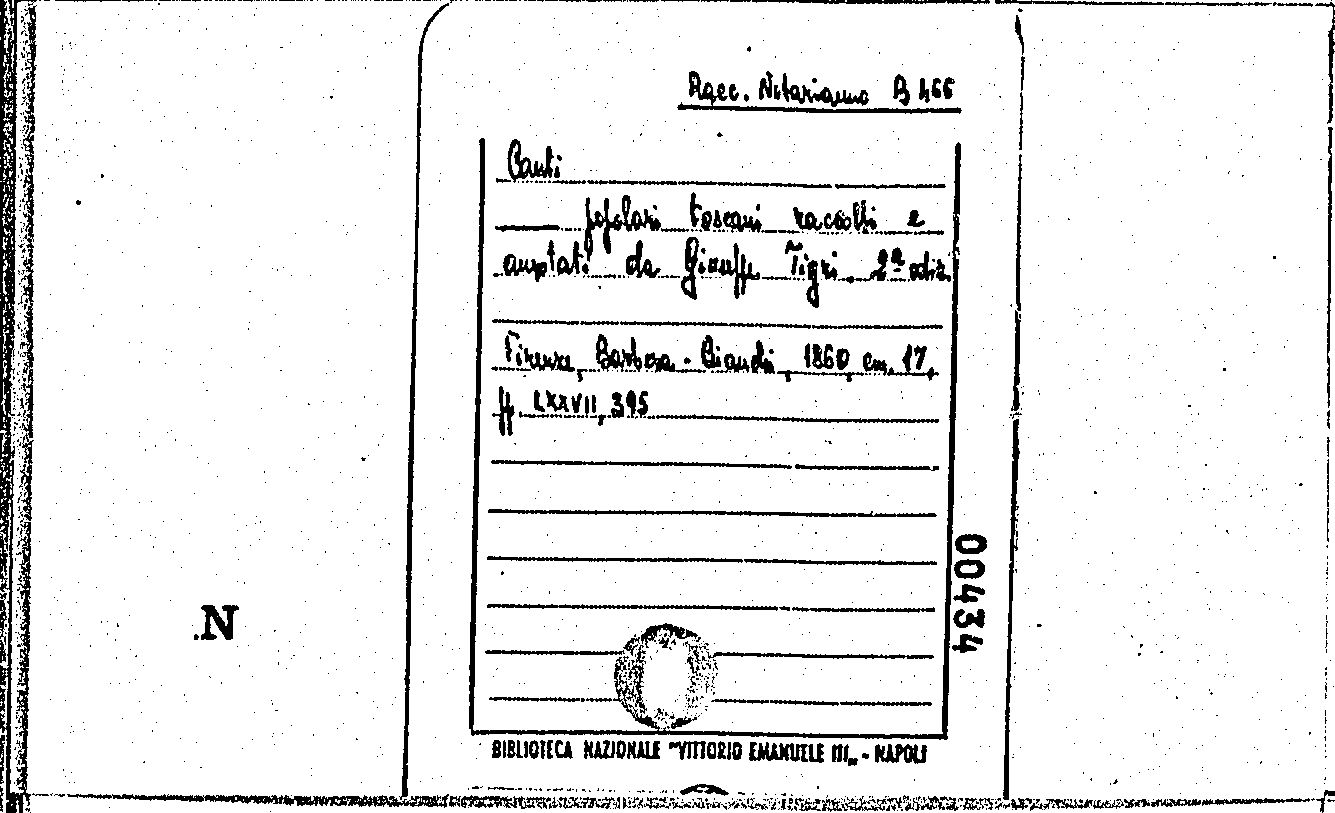 Racc. Notarianno B 466
Canti
popolari toscani raccolti e
annotati da Giuseppe Tigri. 2ª ediz.
Firenze, Barbera-Bianchi, 1860, cm. 17,
pp. LXXVII, 395
00434
N
BIBLIOTECA NAZIONALE "VITTORIO EMANUELE III„ - NAPOLI